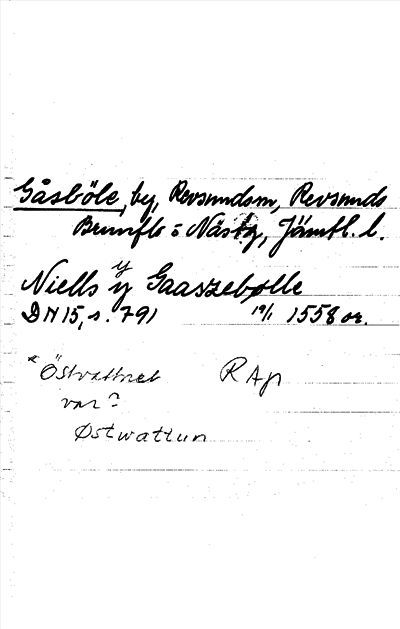 Gåsböle, by, Revsundsm, Revsunds
Brunflo o Näs tg, Jämtl. l.
y
Niells y Gaaszebølle
DN 15, s. 791 19/1 1558 or.
Östvattnet RAp
var?
Østwattun